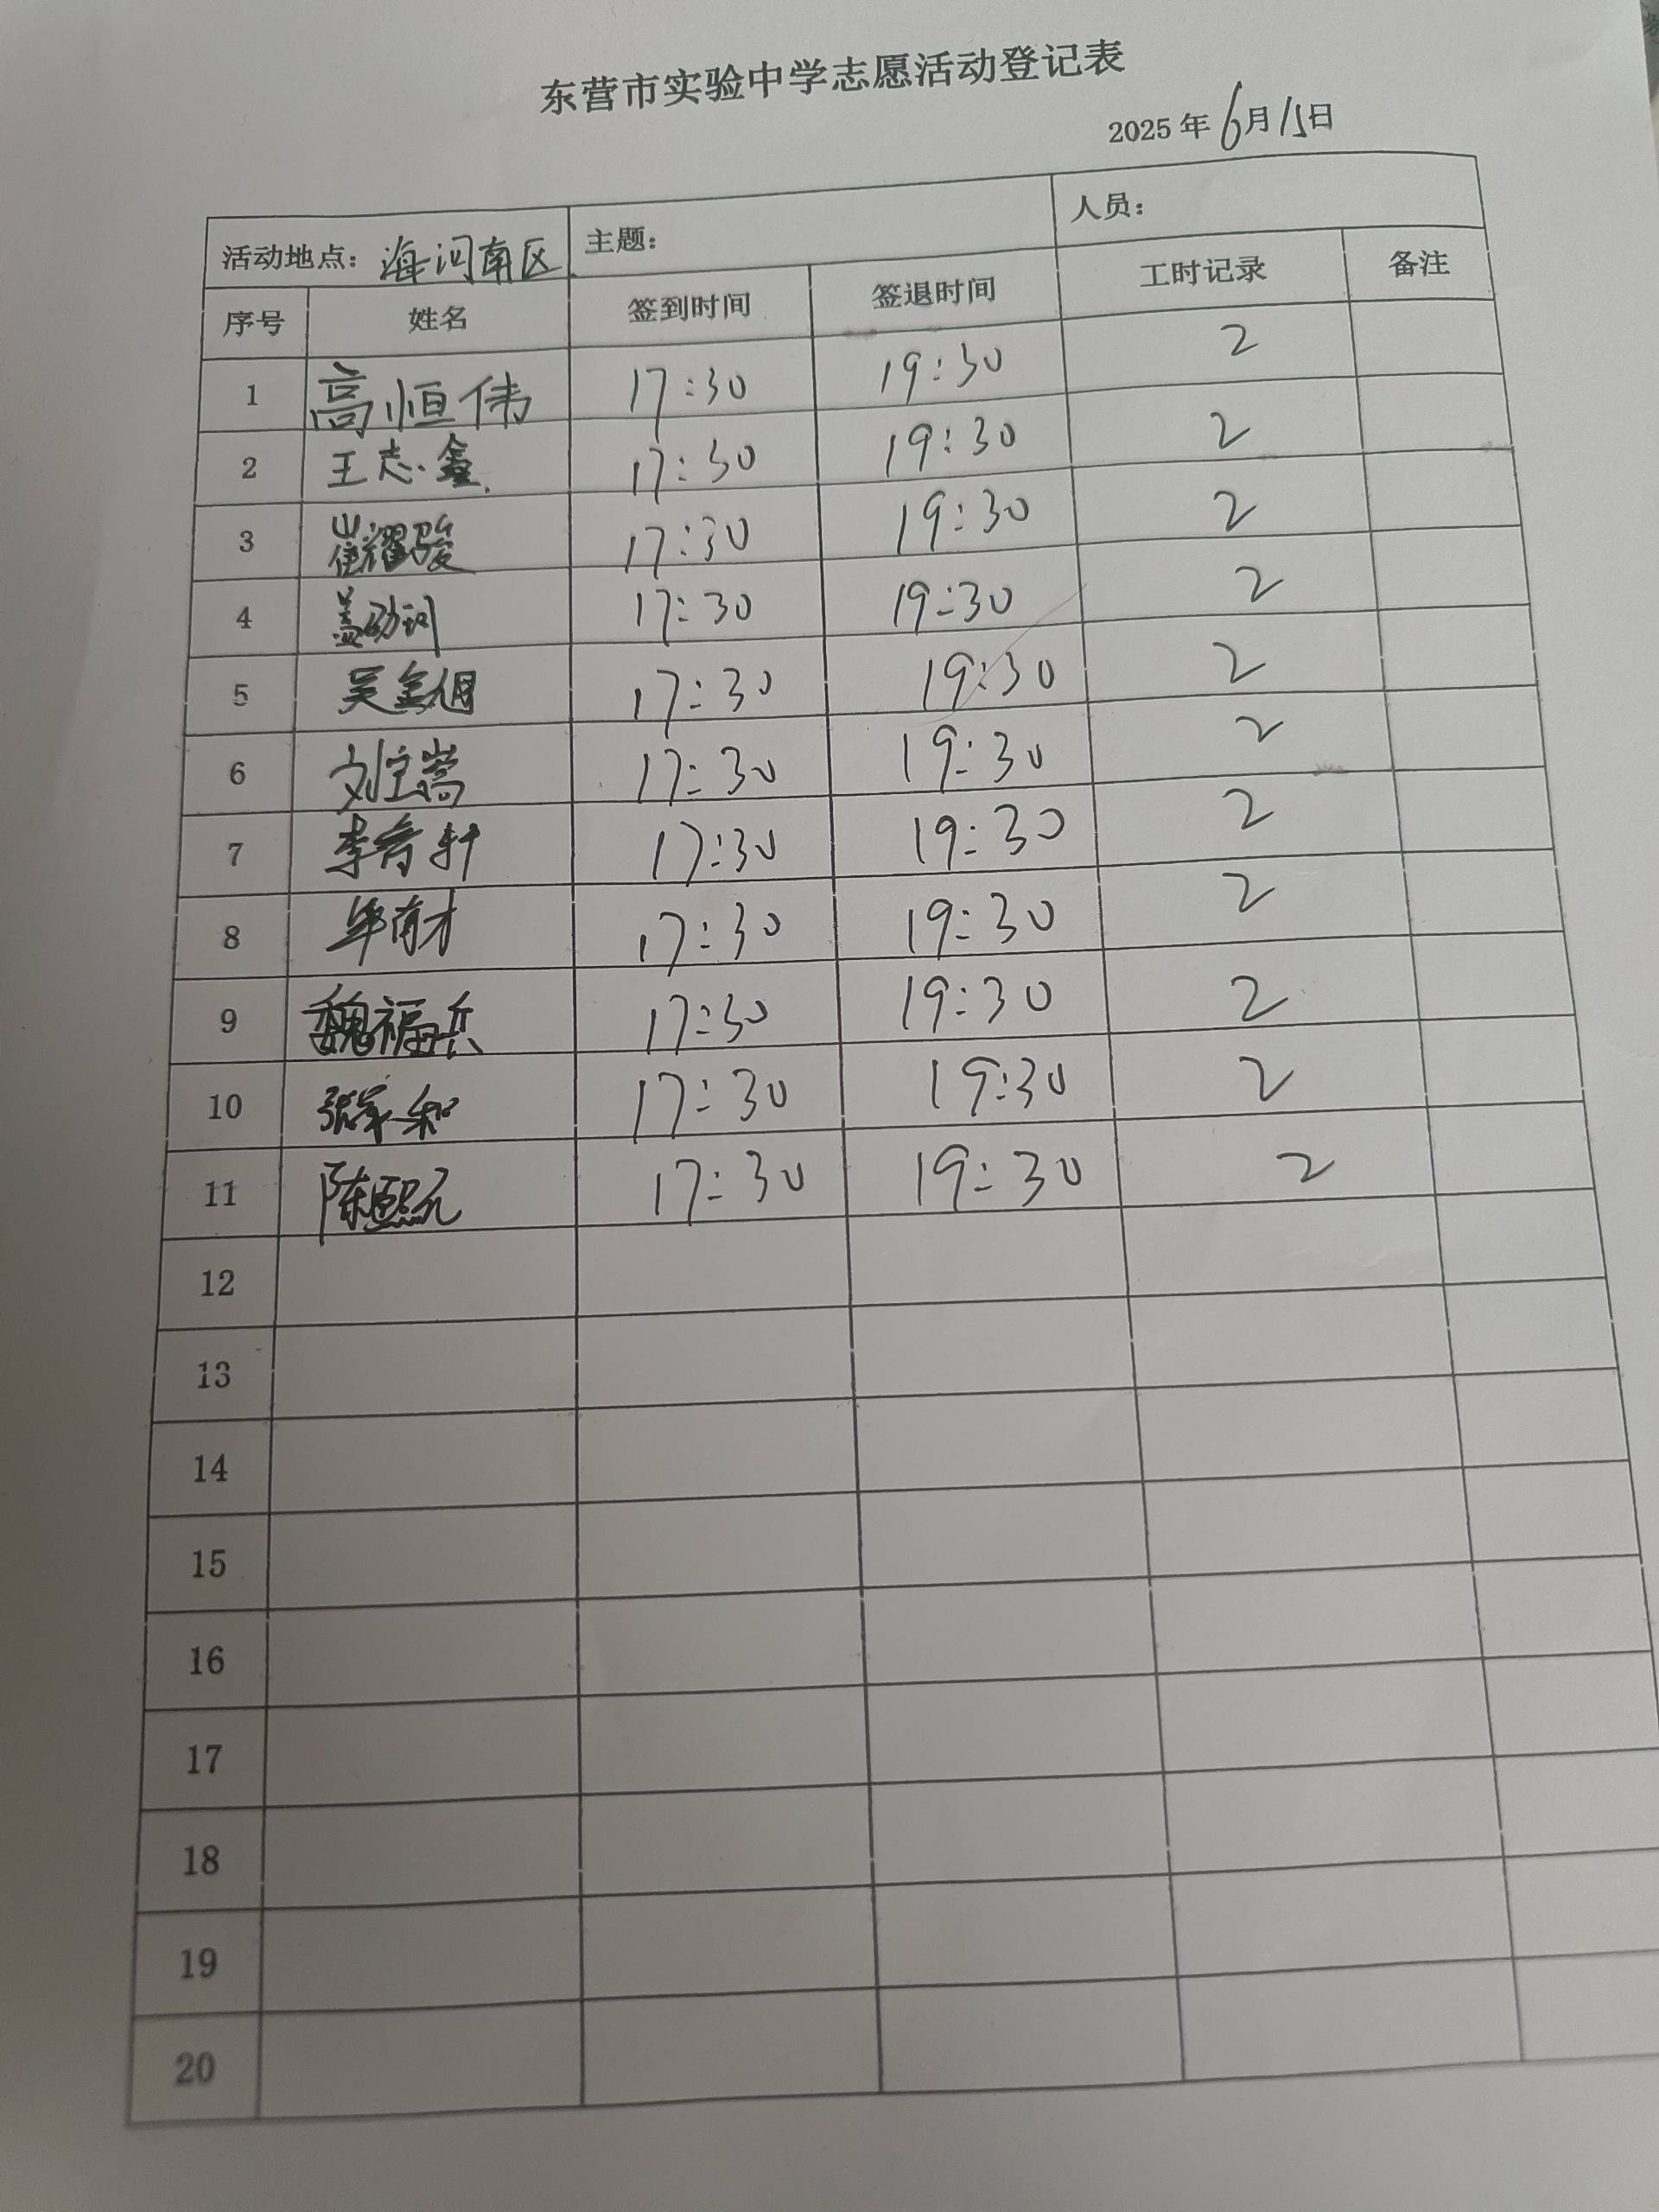 东营市实验中学志愿活动登记表
2025年6月15日
活动地点：海河南区 主题： 人员：
序号 姓名 签到时间 签退时间 工时记录 备注
1 高恒伟 17:30 19:30 2
2 王志鑫 17:30 19:30 2
3 崔耀骏 17:30 19:30 2
4 17:30 19:30 2
5 17:30 19:30 2
6 17:30 19:30 2
7 17:30 19:30 2
8 17:30 19:30 2
9 魏福兵 17:30 19:30 2
10 张家和 17:30 19:30 2
11 陈熙元 17:30 19:30 2
12
13
14
15
16
17
18
19
20